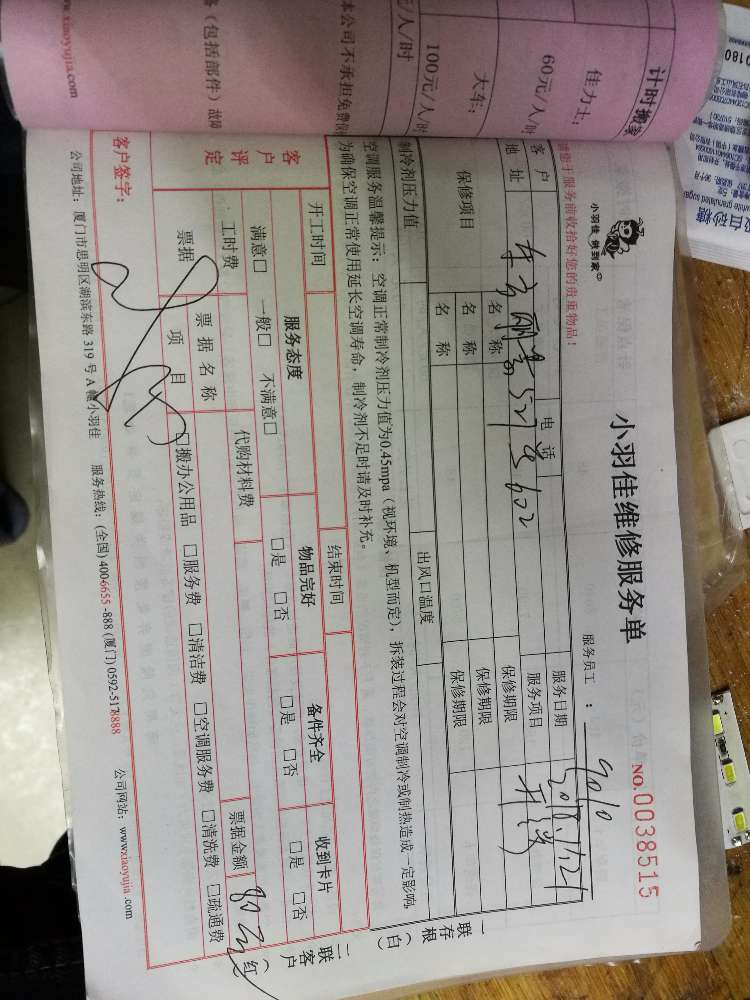 计时搬家
佳力士:
60元/人/时
大车:
100元/人/时
元/人/时
本公司不承担免费保
备(包括部件)故障
www.xiaoyujia.com
小羽佳 做到家
小羽佳维修服务单
NO.0038515
您于服务前收拾好您的贵重物品!
服务员工: 9010
客户
地址
电话
服务日期
527号602
服务项目
保修项目
名称
保修期限
名称
保修期限
名称
保修期限
制冷剂压力值
出风口温度
空调服务温馨提示: 空调正常制冷剂压力值为0.45mpa(视环境、机型而定),拆装过程会对空调制冷或制热造成一定影响,
为确保空调正常使用延长空调寿命,制冷剂不足时请及时补充。
开工时间
结束时间
客户评定
服务态度
物品完好
备件齐全
收到卡片
满意□ 一般□ 不满意□
□是 □否
□是 □否
□是 □否
工时费
代购材料费
票据
票据名称
票据金额
项目
□搬办公用品 □服务费 □清洁费 □空调服务费 □清洗费 □疏通费
客户签字:
公司地址: 厦门市思明区湖滨东路319号A幢小羽佳 服务热线: (全国)4006655-888(厦门)0592-5178888 公司网站: www.xiaoyujia.com
一存根(白)联
二客户(红)联
白砂糖